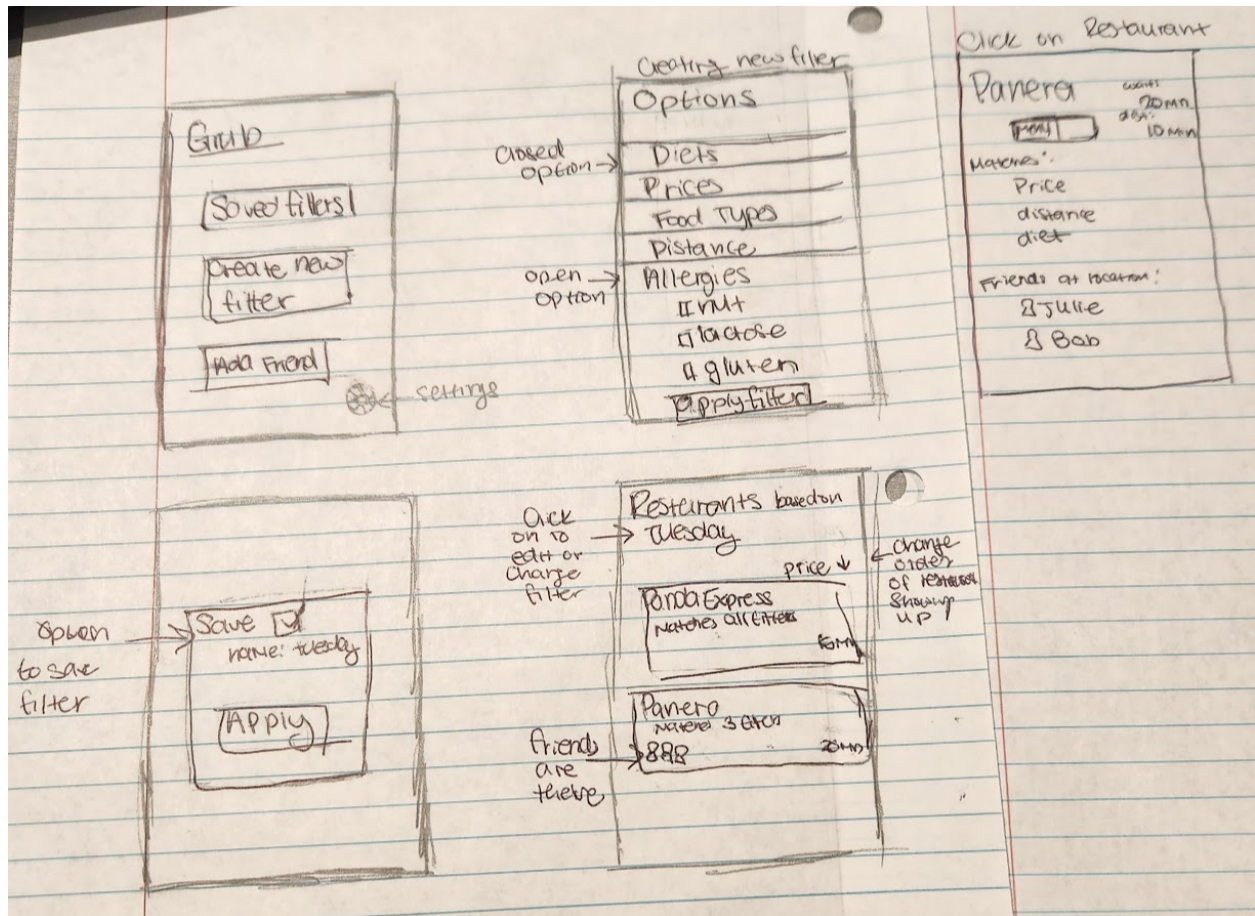 Grub
Saved filters
Create new
filter
Add Friend
settings
Creating new filter
Options
Closed
option
Diets
Prices
Food Types
Distance
open
option
Allergies
nut
lactose
gluten
apply filter
Click on Restaurant
Panera
wait:
20 mn
dist:
10 mn
Menu
Matches:
Price
distance
diet
Friends at location:
Julie
Bob
option
to save
filter
Save
name: tuesday
Apply
Click
on to
edit or
change
filter
Resturants based on
Tuesday
price ↓
change
order
of
showing
up
Panda Express
Matches all filters
Panera
Matches 3
20mn
friends
are
there